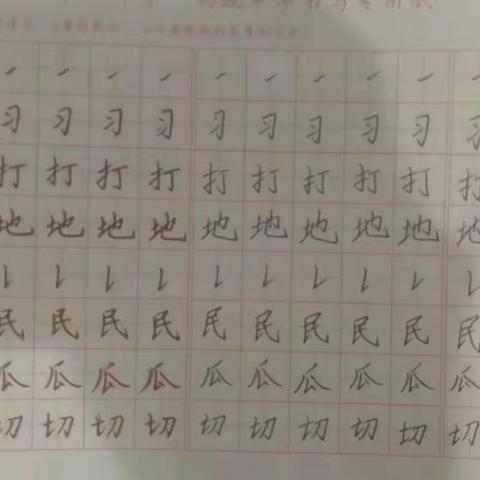 书写专用纸
习 习 习 习 习 习 习 习 习 习
打 打 打 打 打 打 打 打 打 打
地 地 地 地 地 地 地 地 地 地
民 民 民 民 民 民 民 民 民 民
瓜 瓜 瓜 瓜 瓜 瓜 瓜 瓜 瓜 瓜
切 切 切 切 切 切 切 切 切 切